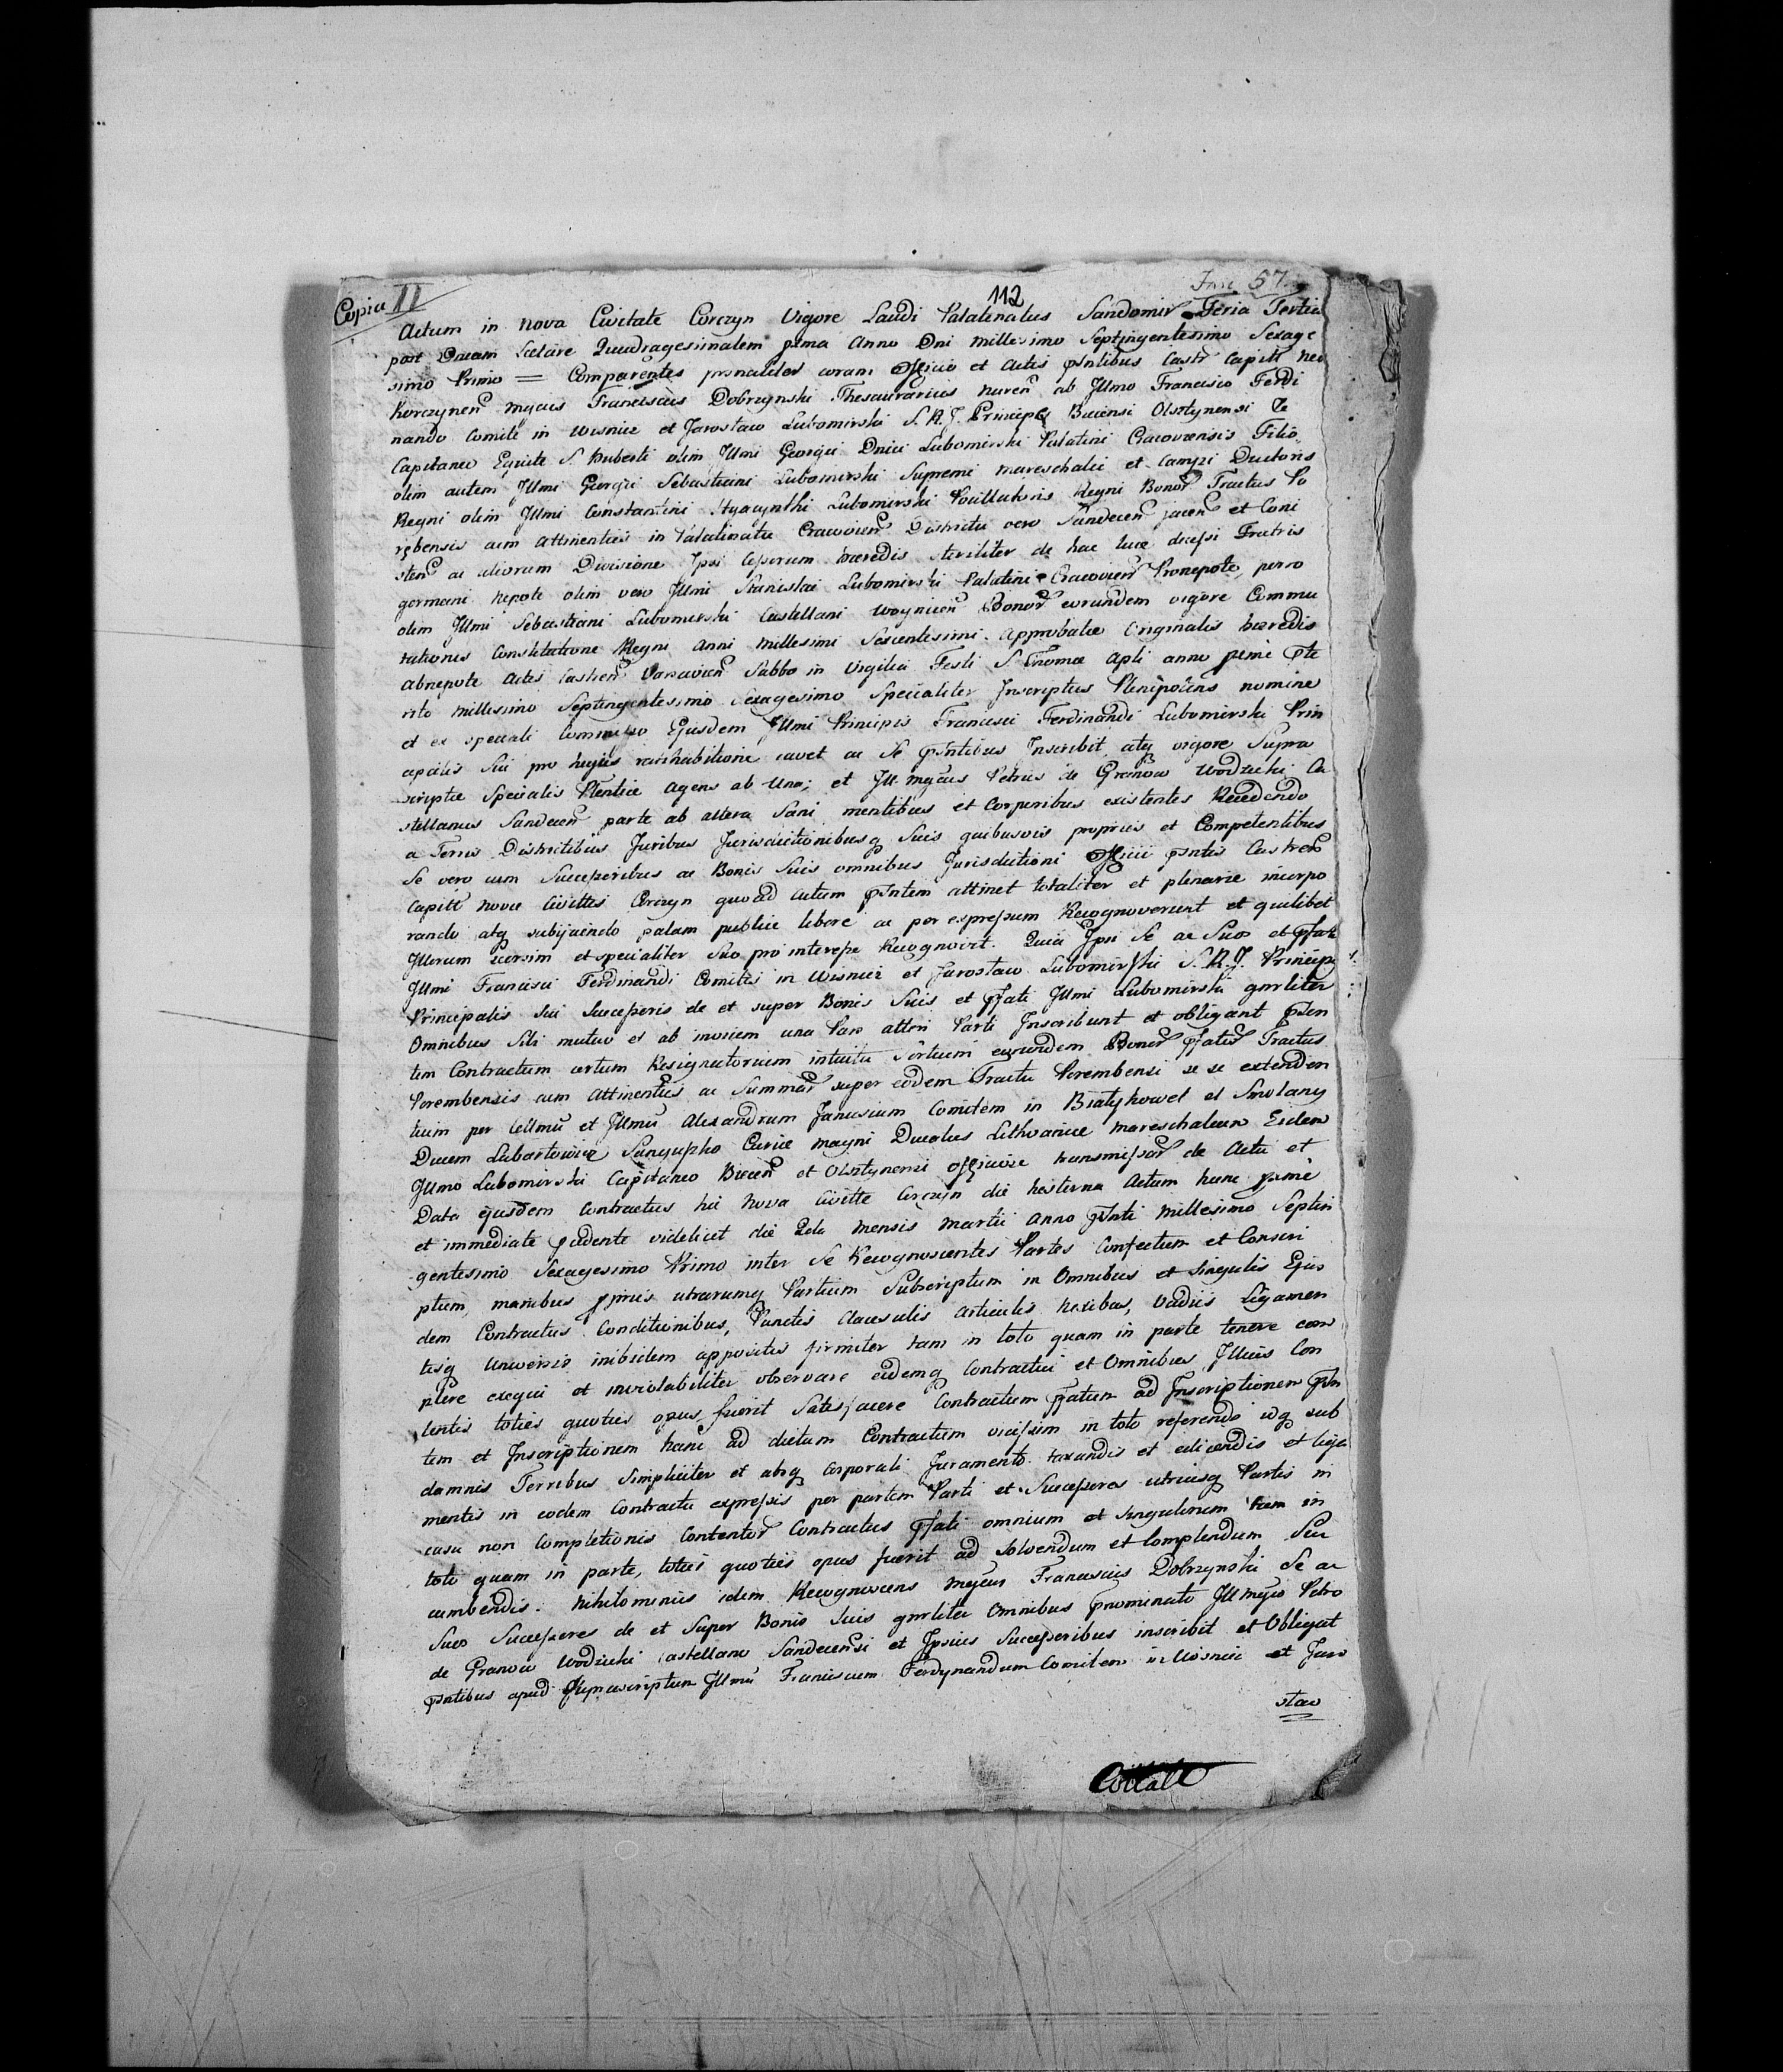 Copia II
112
Fasc 57
Actum in Nova Civitate Corczyn Vigore Laudi Palatinatus Sandomir Feria Tertia
post Dnicam Laetare Quadragesimalem pxma Anno Dni millesimo Septingentesimo Sexage
simo Primo = Comparentes prsnaliter coram Officio et Actis pntibus Castr Capitt Neo
Korczynen Mgcus Franciscus Dobrzynski Thesaurarius Nuren ab Jllmo Francisco Ferdi
nando Comite in Wisnicz et Jaroslaw Lubomirski S. R. J. Principe Biecensi Olsztynensi
Capitaneo Equite S. Huberti olim Jllmi Georgii Dnici Lubomirski Palatini Cracoviensis Filio
olim autem Jllmi Georgii Sebastiani Lubomirski Supremi Mareschalci et Campi Ductoris
Regni olim Jllmi Constantini Hyacynthi Lubomirski Pocillatoris Regni Bonor Tractus Po
rębensis cum Attinentiis in Palatinatu Cracovien Districtu vero Sandecen jacen et Consi
sten ac aliorum Divisione Ipsi Cessorum haeredis steriliter de hac luce decessi Fratris
germani Nepote olim vero Jllmi Stanislai Lubomirski Palatini Cracovien Pronepote, porro
olim Jllmi Sebastiani Lubomirski Castellani Woynicen Bonor eorundem vigore Commu
tationis Constitutione Regni Anni Millesimi Sexcentesimi Approbatae Originalis haeredis
Abnepote Actis Castren Varsavien Sabbo in Vigilia Festi S. Thomae Apli anno pxme pte
rito Millesimo Septingentesimo Sexagesimo Specialiter Inscriptus Plenipotens nomine
et ex speciali Commisso Ejusdem Jllmi Principis Francisci Ferdinandi Lubomirski Prin
cipalis Sui pro hujus ratihabitione cavet ac Se pntibus Inscribit atq vigore Supra
scriptae Specialis Plentiae agens ab Una; et Jll Mgcus Petrus de Granow Wodzicki Ca
stellanus Sandecen parte ab altera Sani mentibus et Corporibus existentes Recedendo
a Terris Districtibus Juribus Jurisdictionibusq Suis quibusvis propriis et Competentibus
Se vero cum Successoribus ac Bonis Suis omnibus Jurisdictioni Officii pntis Castren
Capitt Novae Civittis Corczyn quoad Actum pntem attinet totaliter et plenarie incorpo
rando atq subijciendo palam publice libere ac per expressum Recognoverunt et quilibet
Jllorum seorsim et specialiter Suo pro interesse Recognovit. Quia Ipsi Se ac Suos et pfati
Jllmi Francisci Ferdinandi Comitis in Wisnicz et Jaroslaw Lubomirski S. R. J. Principis
Principalis Sui Successores de et super Bonis Suis et pfati Jllmi Lubomirski gnrliter
Omnibus Sibi mutuo et ab invicem una Pars alteri Parti Inscribunt et obligant psen
tem Contractum certum Resignatorium intuitu Sortium eorundem Bonor pfator Tractus
Porembensis cum Attinentiis ac Summar super eodem Tractu Porembensi se se extenden
tium per Cellmu et Jllmu Alexandrum Janusium Comitem in Białykowel et Smolany
Ducem Lubartowicz Sanguszko Curiae Magni Ducatus Lithvaniae Mareschalcum Eidem
Jllmo Lubomirski Capitaneo Biecen et Olsztynensi officiose transmissor de Actu et
Data ejusdem Contractus hic Nova Civitte Corczyn die hesterna Actum hunc pxme
et immediate pcedente videlicet die 2da Mensis Martii Anno pnti Millesimo Septin
gentesimo Sexagesimo Primo inter Se Recognoscentes Partes Confectum et Conscri
ptum, manibus ppriis utrarumq Partium Subscriptum in Omnibus et Singulis Ejus
dem Contractus Conditionibus, Punctis Clausulis Articulis Nexibus, Vadiis Ligamen
tisq Universis inibidem appositis firmiter tam in toto quam in parte tenere com
plere exequi et inviolabiliter observare eidemq Contractui et Omnibus Illius Con
tentis toties quoties opus fuerit Satisfacere Contractum pfatum ad Inscriptionem psn
tem et Inscriptionem hanc ad dictum Contractum vicissim in toto referendo idq sub
damnis Terribus Simpliciter et absq Corporali Juramento taxandis et edicendis et liga
mentis in eodem Contractu expressis per partem Parti et Successores utriusq Partis in
casu non Completionis Contentor Contractus pfati omnium et Singulorum tam in
toto quam in parte, toties quoties opus fuerit ad Solvendum et Complendum Suc
cumbendis. Nihilominus idem Recognoscens Mgcus Franciscus Dobrzynski Se ac
Suos Successores de et Super Bonis Suis gnrliter Omnibus pnominato Jll Mgco Petro
de Granow Wodzicki Castellano Sandecensi et Ipsius Successoribus inscribit et Obligat
pntibus apud Suprascriptum Jllmu Franciscum Ferdynandum Comitem in Wisnicz et Jaro
slaw